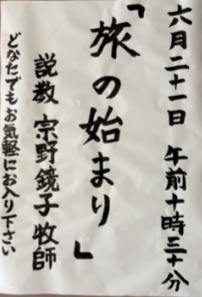 六月二十一日 午前十時三十分
「旅の始まり」
説教 宗野鏡子牧師
どなたでもお気軽にお入り下さい